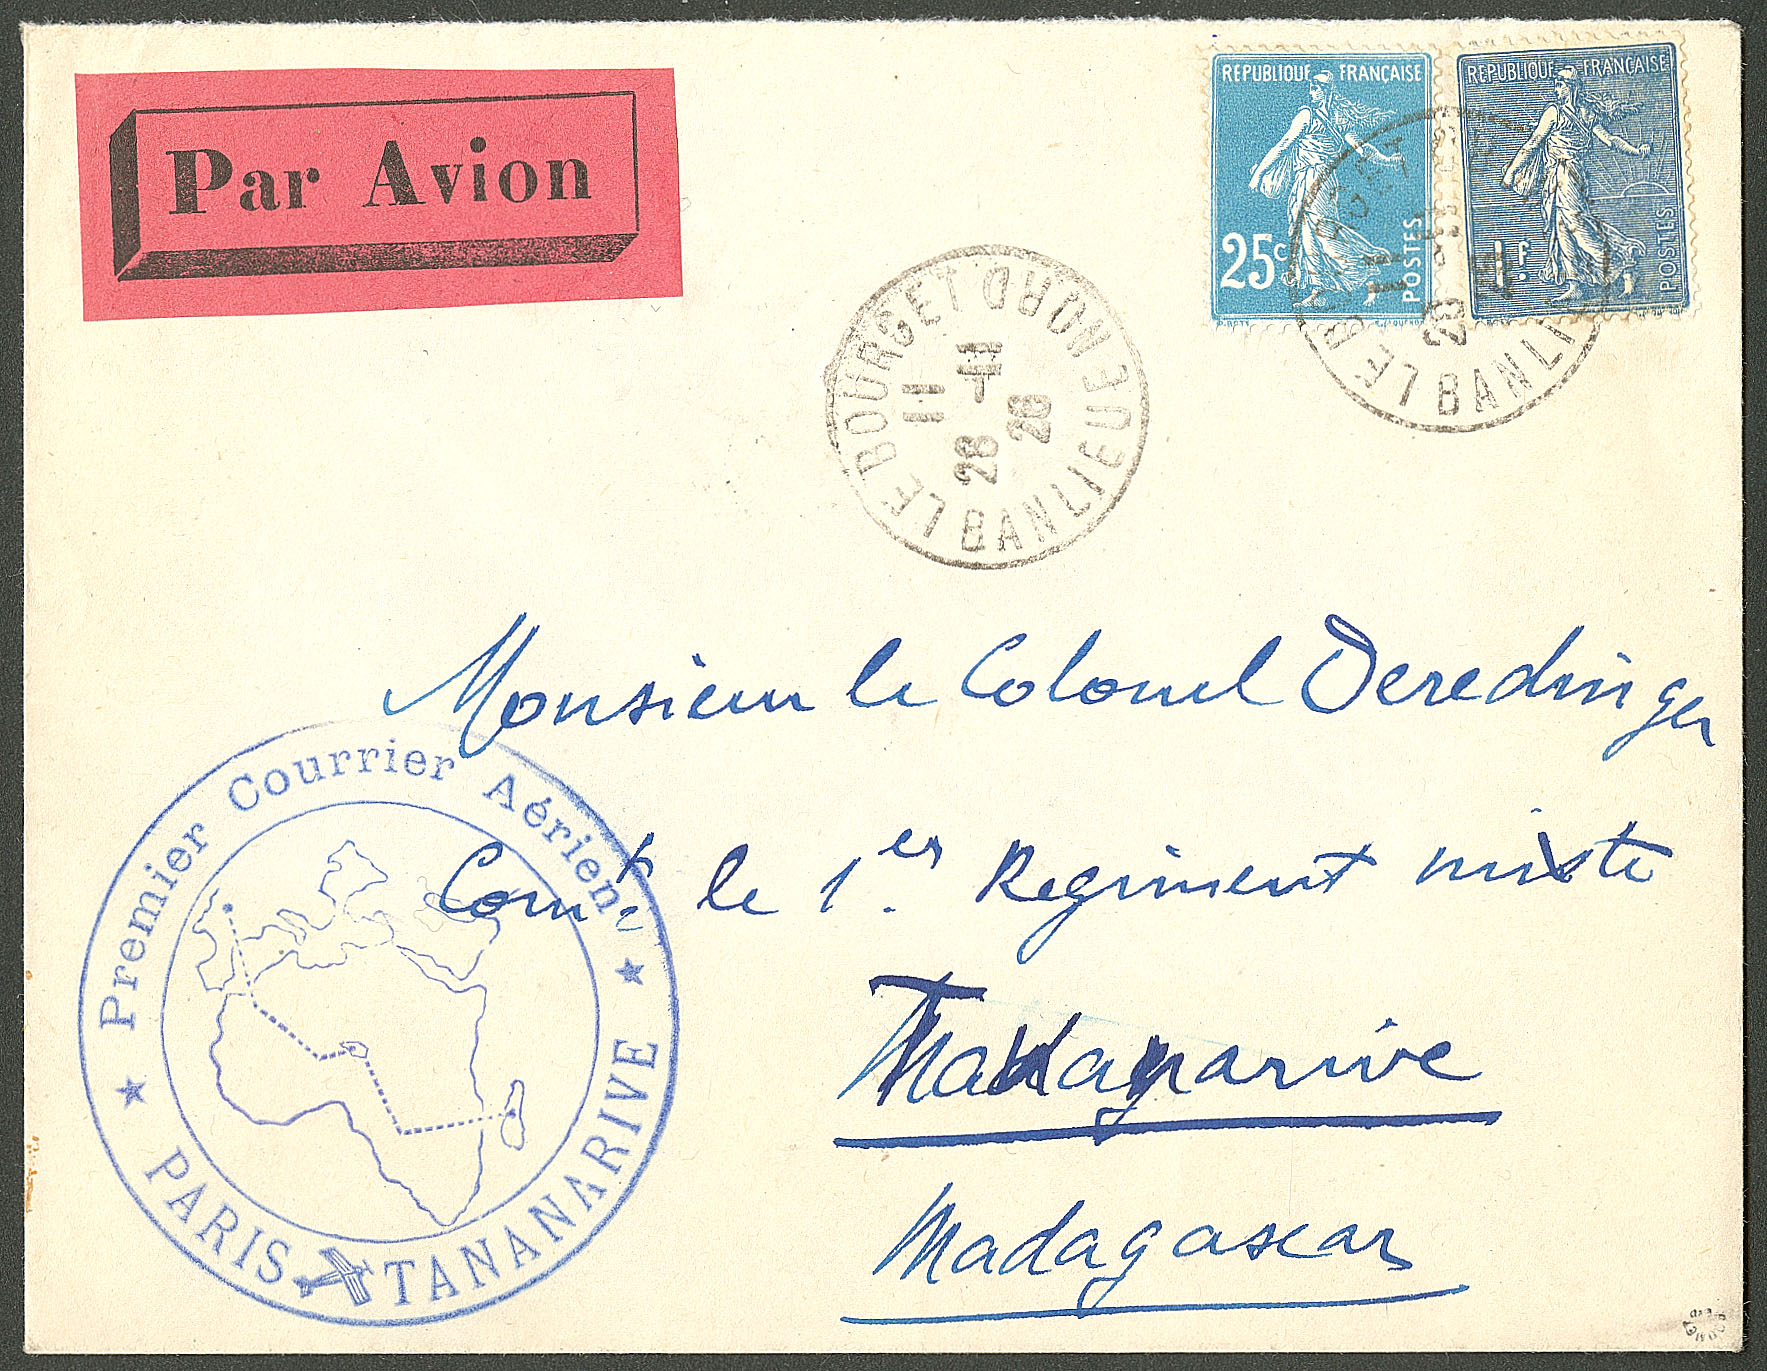 Par Avion
REPUBLIQUE FRANÇAISE
25c
POSTES
REPUBLIQUE FRANÇAISE
1F.
POSTES
LE BOURGET DRONE BANLIEUE
11
28
28
LE BOURGET
28
BANLI
Monsieur le Colonel Deredinger
Comt le 1er Regiment mixte
Tananarive
Madagascar
Premier Courrier Aérien
PARIS TANANARIVE